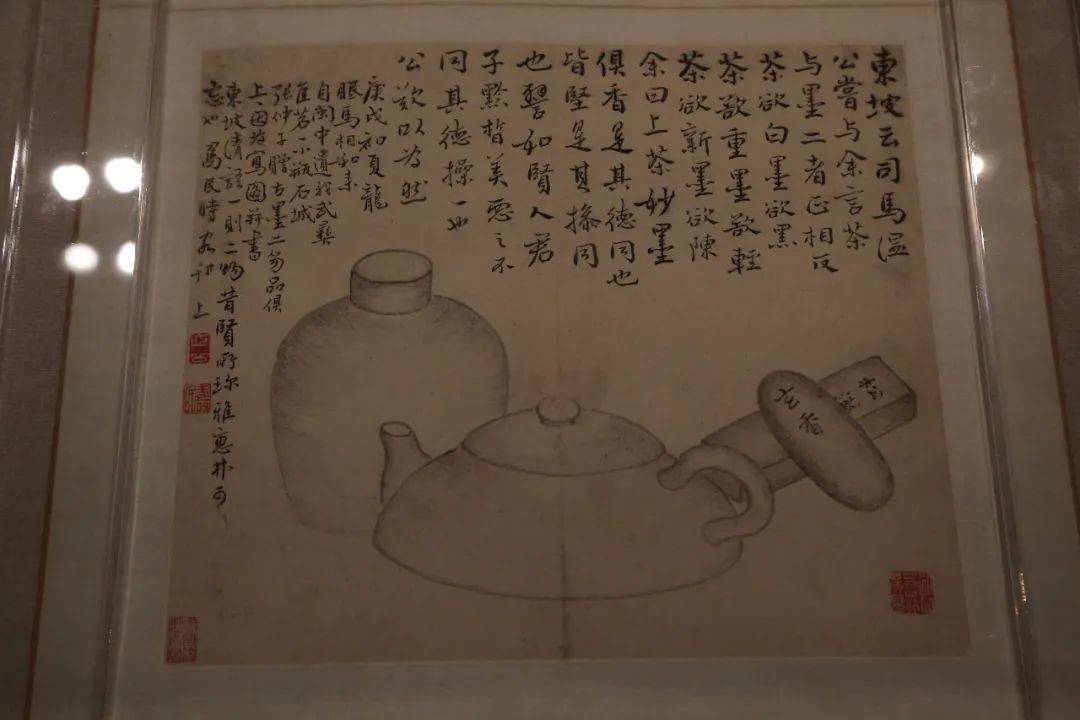 東坡云司馬溫
公嘗与余言茶
与墨二者正相反
茶欲白墨欲黑
茶欲重墨欲輕
茶欲新墨欲陳
余曰上茶妙墨
俱香是其德同也
皆堅是其操同
也譬如賢人君
子黔皙美惡之不
同其德操一也
公歎以為然
庚戌初夏龍
眠馬相如来
自閩中遺我武彝
茗一小瓶石城
張仲子贈古墨二笏品俱
上上因寫圖并書
東坡清語一則二物昔賢所珍雅惠